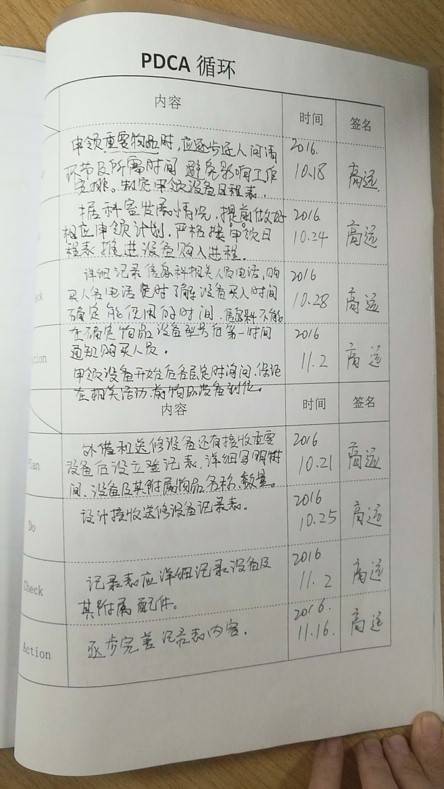 PDCA 循环
内容 时间 签名
申领重要物品时,应逐步逐人问清
环节及所需时间,避免影响工作
安排。制定申领设备日程表。
2016.
10.18
高远
据科室发展情况,提前做好
相应申领计划,严格按申领日
程表推进设备购入进程。
2016
10.24
高远
ck
详细记录 相关人员电话,购
买人员电话 随时了解设备买入时间
确定能使用的时间,
在确定物品设备型号后第一时间
通知购买人员。
2016
10.28
高远
ction
申领设备开始后各层定时询问,保证
在相关活动前物品设备到位。
2016
11.2
高远
内容 时间 签名
lan
外借和送修设备还有接收重要
设备后设立登记表,详细写明时
间、设备及其附属物品名称、数量。
2016
10.21
高远
Do
设计接收送修设备记录表。
2016
10.25
高远
Check
记录表应详细记录设备及
其附属配件。
2016
11.2
高远
Action
逐步完善记录表内容。
2016.
11.16.
高远